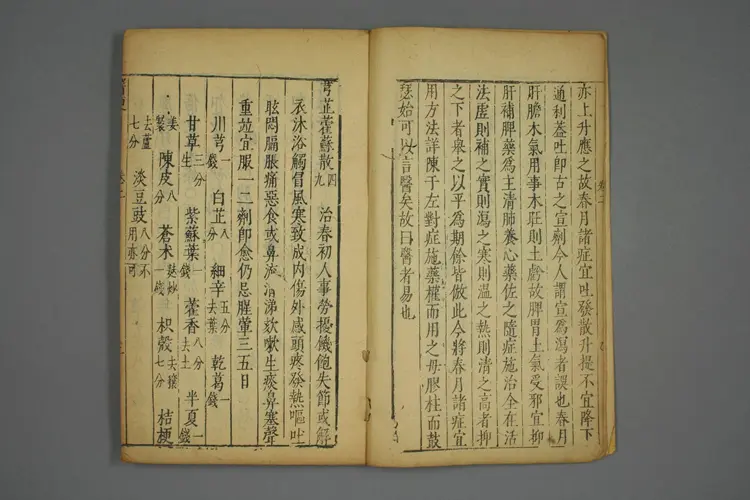 亦上升應之故春月諸症宜吐發散升提不宜降下
通利蓋吐卽古之宣劑今人謂宣爲瀉者誤也春月
肝膽木氣用事木旺則土虧故脾胃土氣受邪宜抑
肝補脾藥爲主清肺養心藥佐之隨症施治全在活
法虛則補之實則瀉之寒則溫之熱則清之高者抑
之下者舉之以平爲期餘皆倣此今將春月諸症宜
用方法詳陳于左對症施藥權而用之毋膠柱而鼓
瑟始可以言醫矣故曰醫者易也
芎芷藿蘇散 四九 治春初人事勞擾饑飽失節或解
衣沐浴觸冒風寒致成內傷外感頭疼發熱嘔吐
眩悶膈脹痛惡食或鼻流清涕欬嗽生痰鼻塞聲
重竝宜服一二劑卽愈仍忌腥葷三五日
川芎一錢 白芷八分 細辛五分去葉 乾葛一錢
甘草三分生 紫蘇葉一錢 藿香八分去土 半夏一錢
姜製 陳皮八分 蒼朮麩炒一錢 枳殼去穰七分 桔梗
去蘆七分 淡豆豉八分不用亦可
卷二